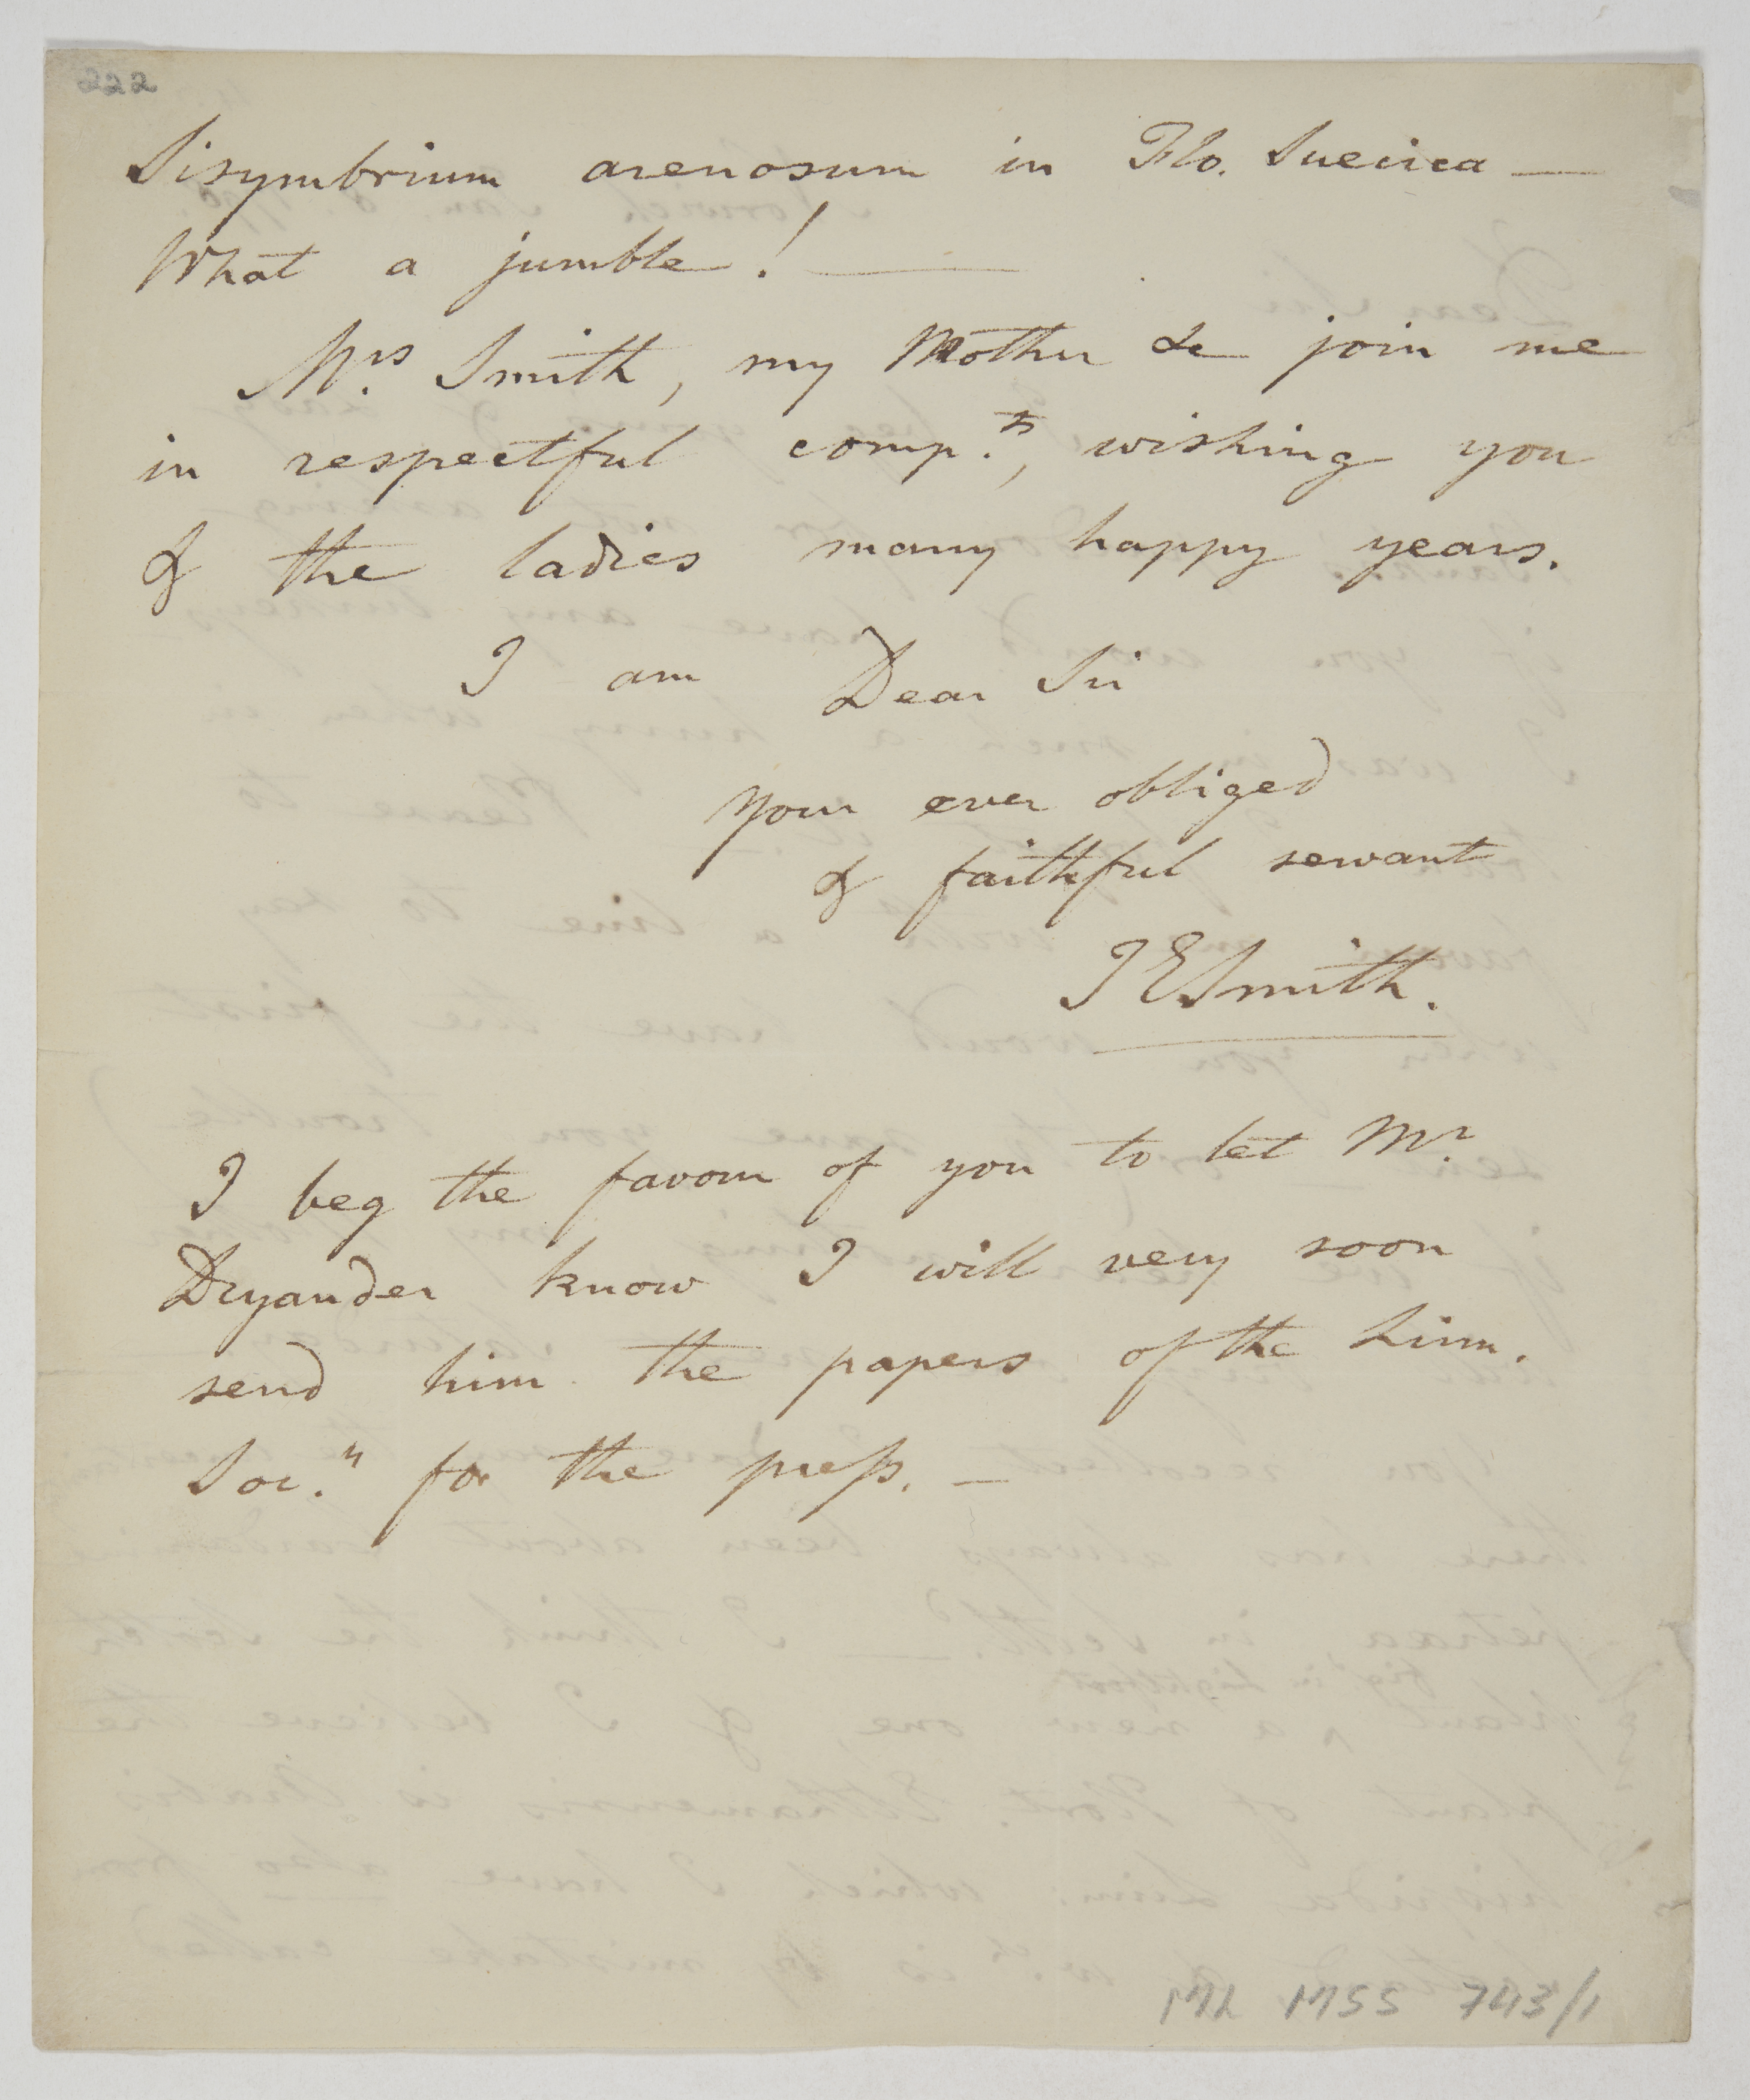 222
Sisymbrium arenosum in Flo. Suecica —
What a jumble! —
Mrs. Smith, my Mother &c join me
in respectful compts., wishing you
& the ladies many happy years.
I am Dear Sir
Your ever obliged
& faithful servant
JESmith.
I beg the favour of you to let Mr.
Dryander know I will very soon
send him the papers of the Linn.
Soc.y for the preſs. —
ML MSS 743/1